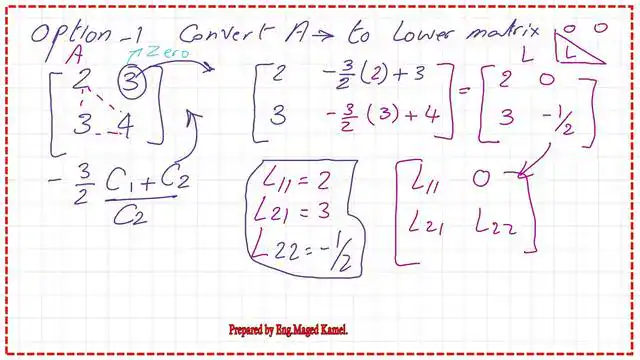 Option-1 Convert A → to Lower matrix
A → Zero L 0 0 L
[2 3
3 4]
[2 -3/2(2)+3
3 -3/2(3)+4] = [2 0
3 -1/2]
-3/2 C1+C2
C2
L11 = 2
L21 = 3
L22 = -1/2
[L11 0
L21 L22]
Prepared by Eng.Maged Kamel.